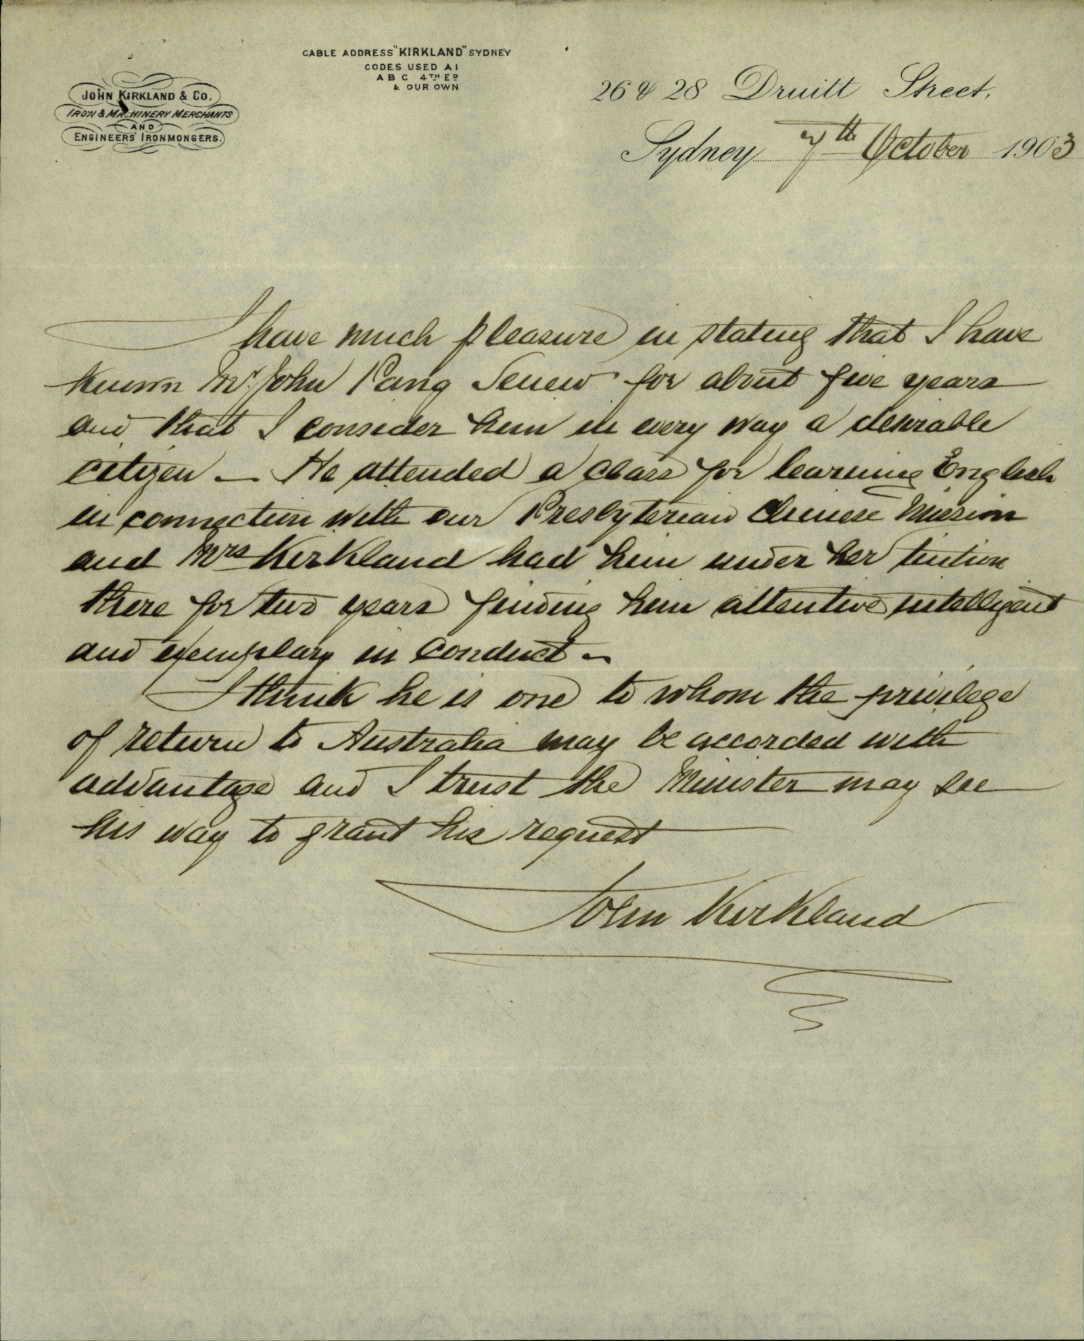 CABLE ADDRESS "KIRKLAND" SYDNEY
CODES USED A1
A B C 4TH ED
& OUR OWN
JOHN KIRKLAND & Co.
IRON & MACHINERY MERCHANTS
AND
ENGINEERS' IRONMONGERS.
26 & 28 Druitt Street,
Sydney 7th October 1903
I have much pleasure in stating that I have
known Mr John Pang for about five years
and that I consider him in every way a desirable
citizen - He attended a class for learning English
in connection with our Presbyterian Chinese Mission
and Mrs Kirkland had him under her tuition
there for two years finding him attentive intelligent
and exemplary in conduct -
I think he is one to whom the privilege
of return to Australia may be accorded with
advantage and I trust the Minister may see
his way to grant his request
John Kirkland